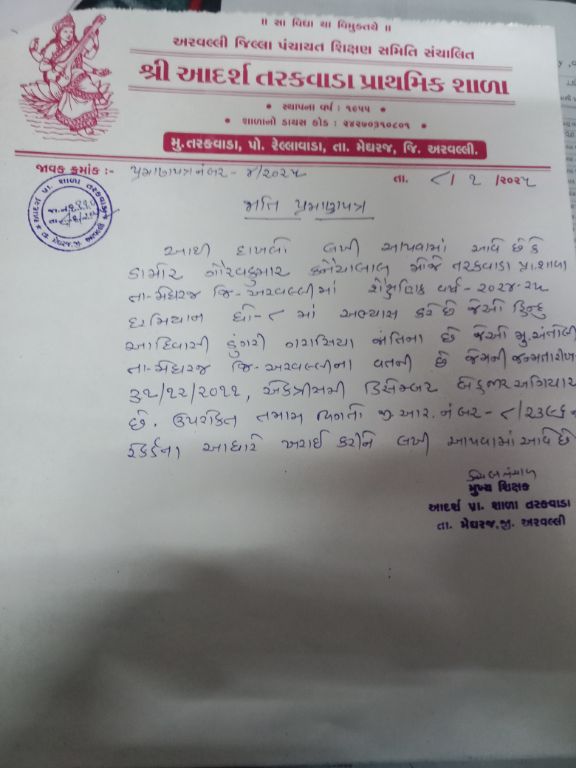 ॥ સા વિદ્યા યા વિમુક્તયે ॥
અરવલ્લી જિલ્લા પંચાયત શિક્ષણ સમિતિ સંચાલિત
શ્રી આદર્શ તરકવાડા પ્રાથમિક શાળા
● સ્થાપના વર્ષ : ૧૯૫૫ ●
● શાળાનો ડાયસ કોડ : ૨૪૨૯૦૩૧૦૮૦૧ ●
મુ.તરકવાડા, પો. રેલ્લાવાડા, તા. મેઘરજ, જિ. અરવલ્લી.
જાવક ક્રમાંક :- પ્રમાણપત્ર નંબર - ૪/૨૦૨૫ તા. ૮/૧/૨૦૨૫
જાતિ પ્રમાણપત્ર
આથી દાખલો લખી આપવામાં આવે છે કે
ડામોર ગૌરવકુમાર કનૈયાલાલ મોજે તરકવાડા પ્રા.શાળા
તા-મેઘરજ જિ-અરવલ્લીમાં શૈક્ષણિક વર્ષ-૨૦૨૪-૨૫
દરમિયાન ધો-૮ માં અભ્યાસ કરે છે જેઓ હિન્દુ
આદિવાસી ડુંગરી ગરાસિયા જાતિના છે જેઓ મુ.
તા-મેઘરજ જિ-અરવલ્લીના વતની છે જેમની જન્મતારીખ
૩૧/૧૨/૨૦૧૧, એકત્રીસમી ડિસેમ્બર બેહજાર અગિયાર
છે. ઉપરોક્ત તમામ વિગતો જી.આર.નંબર - ૮/૨૩૯૬ ના
રેકર્ડના આધારે ખરાઈ કરીને લખી આપવામાં આવે છે
મુખ્ય શિક્ષક
આદર્શ પ્રા. શાળા તરકવાડા
તા. મેઘરજ.જી. અરવલ્લી